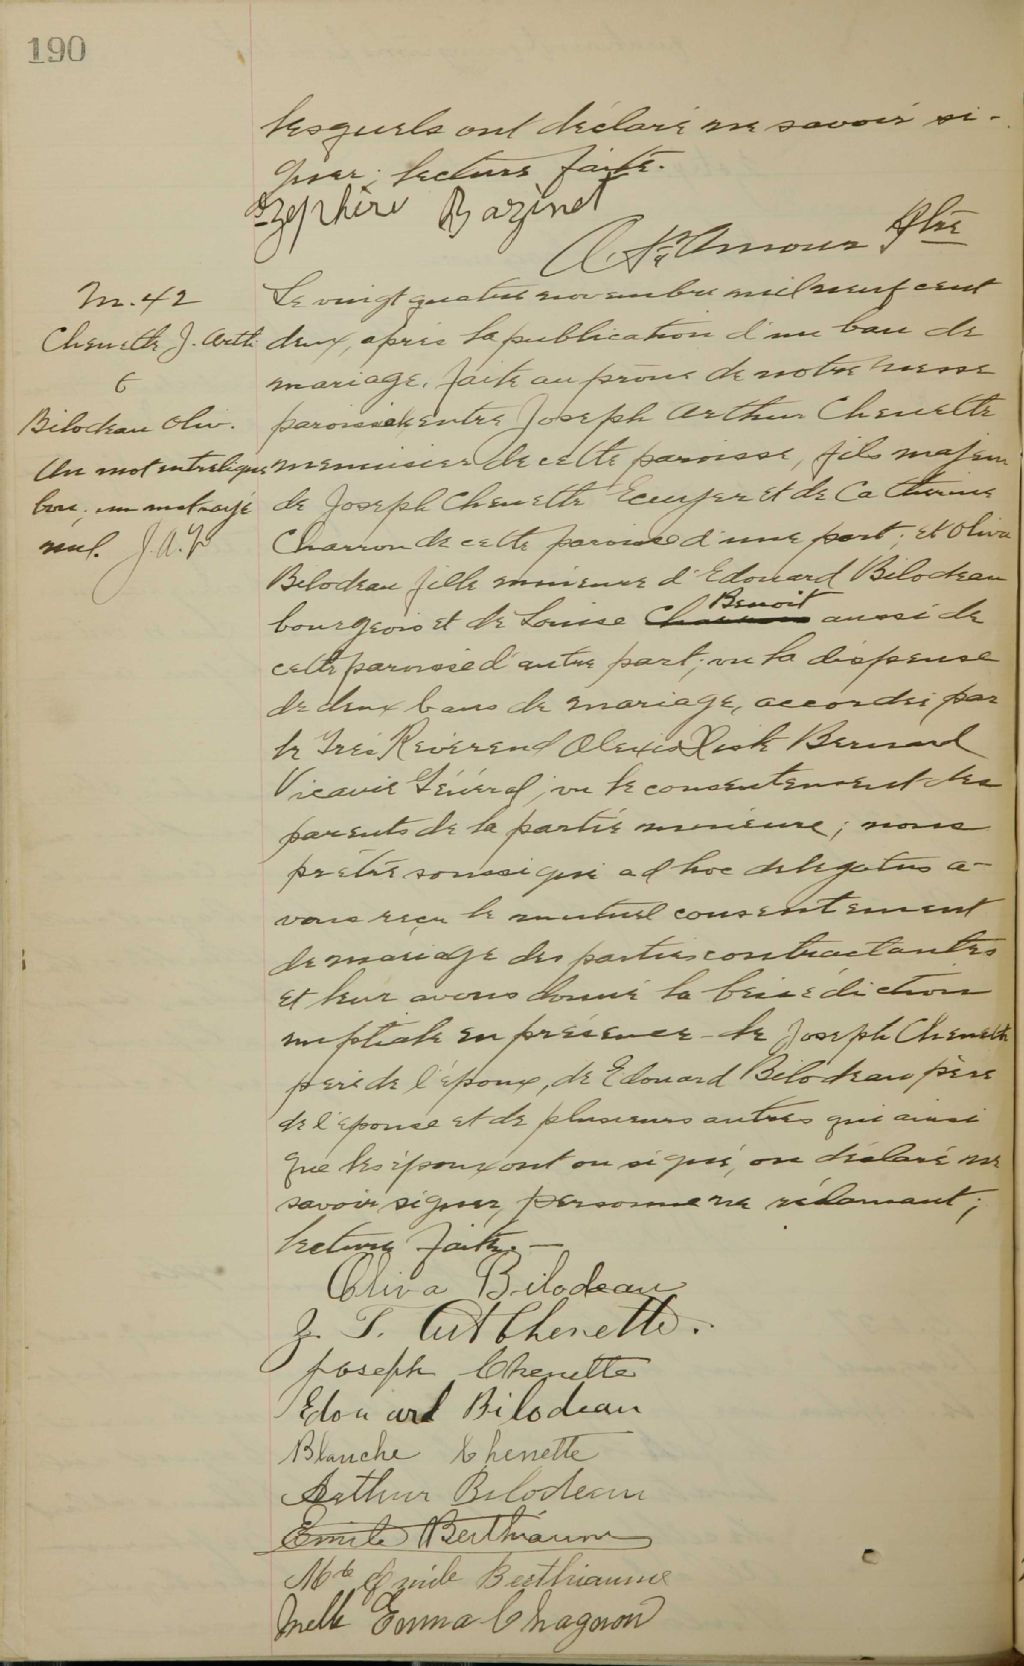 190
lesquels ont déclaré ne savoir si-
gner; lecture faite.
Zéphire Bazinet
St Amour Ptre
M. 42
Chenette J. Arth.
&
Bilodeau Oliv.
Un mot entreligne
bon; un mot rayé
nul. J.A.
Le vingt quatre novembre mil neuf cent
deux, après la publication d'un ban de
mariage, faite au prône de notre messe
paroissiale entre Joseph Arthur Chenette
menuisier de cette paroisse, fils majeur
de Joseph Chenette Ecuyer et de Catherine
Charron de cette paroisse d'une part; et Oliva
Bilodeau fille mineure d'Edouard Bilodeau
bourgeois et de Louise Charron Benoit aussi de
cette paroisse d'autre part; vu la dispense
de deux bans de mariage, accordée par
le Très Révérend Alexis Xiste Bernard
Vicaire Général; vu le consentement des
parents de la partie mineure; nous
prêtre soussigné ad hoc delegatus a-
vons reçu le mutuel consentement
de mariage des parties contractantes
et leur avons donné la bénédiction
nuptiale en présence de Joseph Chenette
père de l'époux, de Edouard Bilodeau père
de l'épouse et de plusieurs autres qui ainsi
que les époux ont ou signé, ou déclaré ne
savoir signer, personne ne réclamant;
lecture faite. —
Oliva Bilodeau
J. Art Chenette.
Joseph Chenette
Edouard Bilodeau
Blanche Chenette
Arthur Bilodeau
Emile Berthiaume
Mde Emile Berthiaume
Melle Emma Chagnon